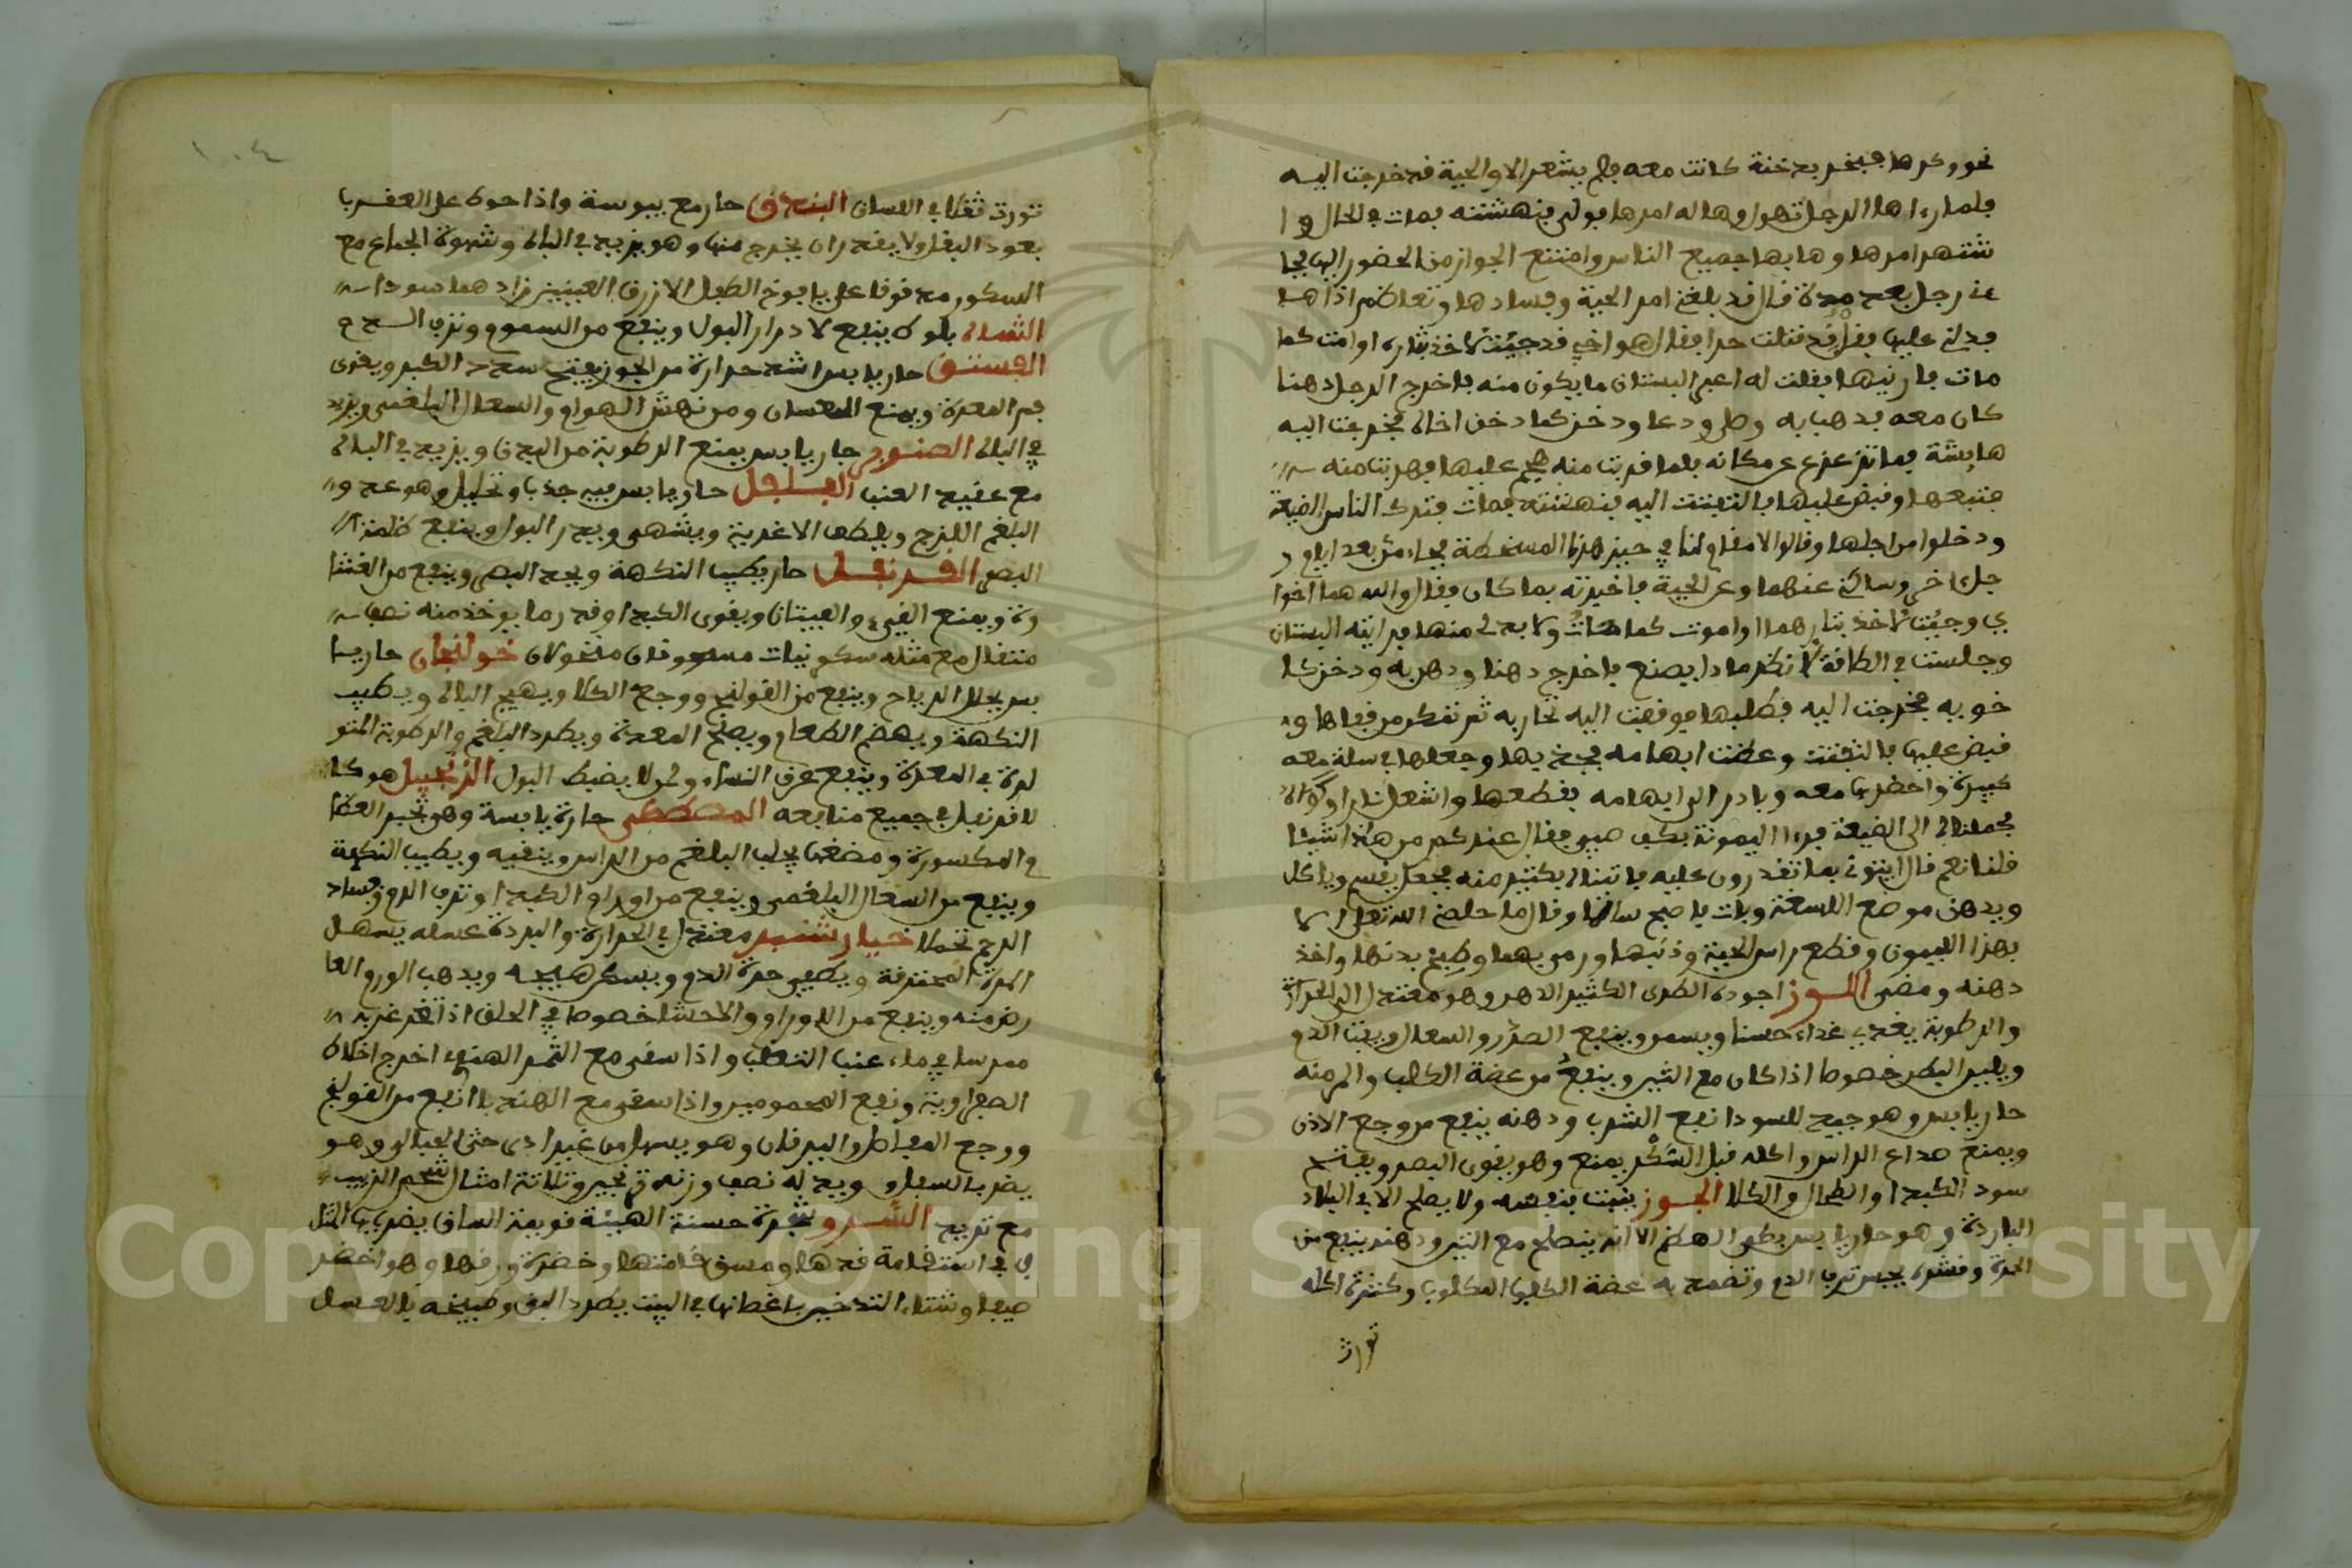 نحو وكرها فبخر بدخنة كانت معه فلم يشعر الا والحية قد خرجت اليه
فلما رءاها الرجل تهول وهاله امرها فولى فنهشته فمات في الحال وا
شتهر امرها وهابها جميع الناس وامتنع الجواز من الحضور اليها فجا
ءنا رجل بعد مدة قال قد بلغني امر الحية وفسادها وتعاظم اذاها
فدلني عليها فقلت قد قتلت حوا فقال هو اخي قد جئت لاخذ بثاره او امت كما
مات فاريتها فقلت له اعبر البستان ما يكون منه فاخرج الرجل دهنا
كان معه فدهب به وطلى ودعا ودخن كما دخن اخاه فخرجت اليه
هايشة فما تزعزع عن مكانه فلما قربت منه هجم عليها فهربت منه
فتبعها وقبض عليها فالتفتت اليه فنهشته فمات فترك الناس الضيعة
ودخلوا من اجلها وقالوا لا مقام لنا في حيز هذا المسخطة فجاءنا بعد ايام ر
جل اخر وسالني عنهما وعن الحية فاخبرته بما كان فقال والله هما اخوا
ي وجئت لاخذ بثارهما او اموت كما مات ولا بد لي منها فراته البستان
وجلست في الطاقة لانظر ماذا يصنع فاخرج دهنا ودهن به ودخن كا
خويه فخرجت اليه فطلبها فوقفت اليه تحاربه ثم تمكن من قفاها و
قبض عليها فالتفتت وعضت ابهامه فجذبها وجعلها في سلة معه
كبيرة واحضرها معه وبادر الى ابهامه فقطعها واشعل نارا وكواه
فحملناه الى الضيعة فرءا اليمونة بكف صبي فقال عندكم من هذا شيئا
قلنا نعم قال ايتوني بما تقدرون عليه فاتيناه بكثير منه فجعل يقسم وياكل
ويدهن موضع اللسعة وبات فاصبح سالما وقال ما خلصني الله تعلى الا
بهذا الليمون وقطع راس الحية وذنبها ورمى بهما وطبخ بدنها واخذ
دهنه ومضى اللوز اجوده الطري الكثير الدهن وهو معتدل الى الحرارة
والرطوبة يغذي غذاء حسنا ويسمن وينفع الصدر والسعال ونفث الدم
ويلين البطن خصوصا اذا كان مع التين وينفع من عضة الكلب والمر منه
حار يابس وهو جيد للسودا نفع الشرب ودهنه ينفع من وجع الاذن
ويمنع صداع الراس واكله قبل السكر يمنع وهو يقوي البصر ويفتح
سدد الكبد والطحال والكلا الجوز ينبت بنفسه ولا يصلح الا في البلاد
الباردة وهو حار يابس بطي الهضم الا انه يصلح مع التين ودهنه ينفع من
الحرة وقشره يحبس نزف الدم وتضمد به عضة الكلب المكلوب وكثرة اكله
تورث
١٠٤
تورث ثقلا في اللسان البندق حار مع يبوسة واذا حوك على العقرب
بعود البندق لا يقدر ان يخرج منها وهو يزيد في الباه وشهوة الجماع مع
السكر مدقوقا على يافوخ الطفل الازرق العينين زادهما سوادا
الشاه بلوط ينفع لادرار البول وينفع من السموم ونزف الدم
الفستق حار يابس اشد حرارة من الجوز يفتح سدد الكبد ويقوي
فم المعدة ويمنع الغثيان ومن نهش الهوام والسعال البلغمي ويزيد
في الباه الصنوبر حار يابس يمنع الرطوبة من البدن ويزيد في الباه
مع عقيد العنب الفلفل حار يابس فيه جذب وتحليل وهو عدو
البلغم اللزج ويلطف الاغذية ويشهي ويدر البول وينفع ظلمة
البصر القرنفل حار يطيب النكهة ويحد البصر وينفع من الغشا
وة ويمنع القيء والغثيان ويقوي الكبد وقدر ما يوخذ منه نصف
مثقال مع مثله سكر نبات مسحوقان منخولان خولنجان حار يا
بس يحلل الرياح وينفع من القولنج ووجع الكلا ويهيج الباه ويطيب
النكهة ويهضم الطعام ويصلح المعدة ويطرد البلغم والرطوبة المتو
لدة في المعدة وينفع عرق النساء ولمن لا يضبط البول الزنجبيل هو كا
لقرنفل في جميع منافعه المصطكى حارة يابسة وهي تجبر العظا
م المكسورة ومضغها يجلب البلغم من الراس وينقيه ويطيب النكهة
وينفع من السعال البلغمي وينفع من اورام الكبد ونزف الدم وفساد
الرحم تحملا خيار شنبر معتدل في الحرارة والبردة عسله يسهل
المرة المحترقة ويطفي حرة الدم ويسكن هيجه ويذهب الورم العا
رض منه وينفع من الاورام والاحشا خصوصا في الحلق اذا تغرغر به
ممرسا في ماء عنب الثعلب واذا سقي مع التمر الهندي اخرج اخلاط
الصفراوية ونفع المحمومين واذا سقي مع الهندبا نفع من القولنج
ووجع المفاصل واليرقان وهو يسهل من غير اذى حتى الحبالى وهو
يضر بالسفل وبدله نصف وزنه ترنجبين وثلاثة امثال شحم الزبيب
مع تربد السرو شجرة حسنة الهيئة قويمة الساق يضرب بها المثل
في استقامة قدها وحسن قامتها وخضرة ورقها وهو اخضر
صيفا وشتاء التدخين باغصانها في البيت يطرد البق وطبيخه بالعسل
Copyright © King Saud University
1957